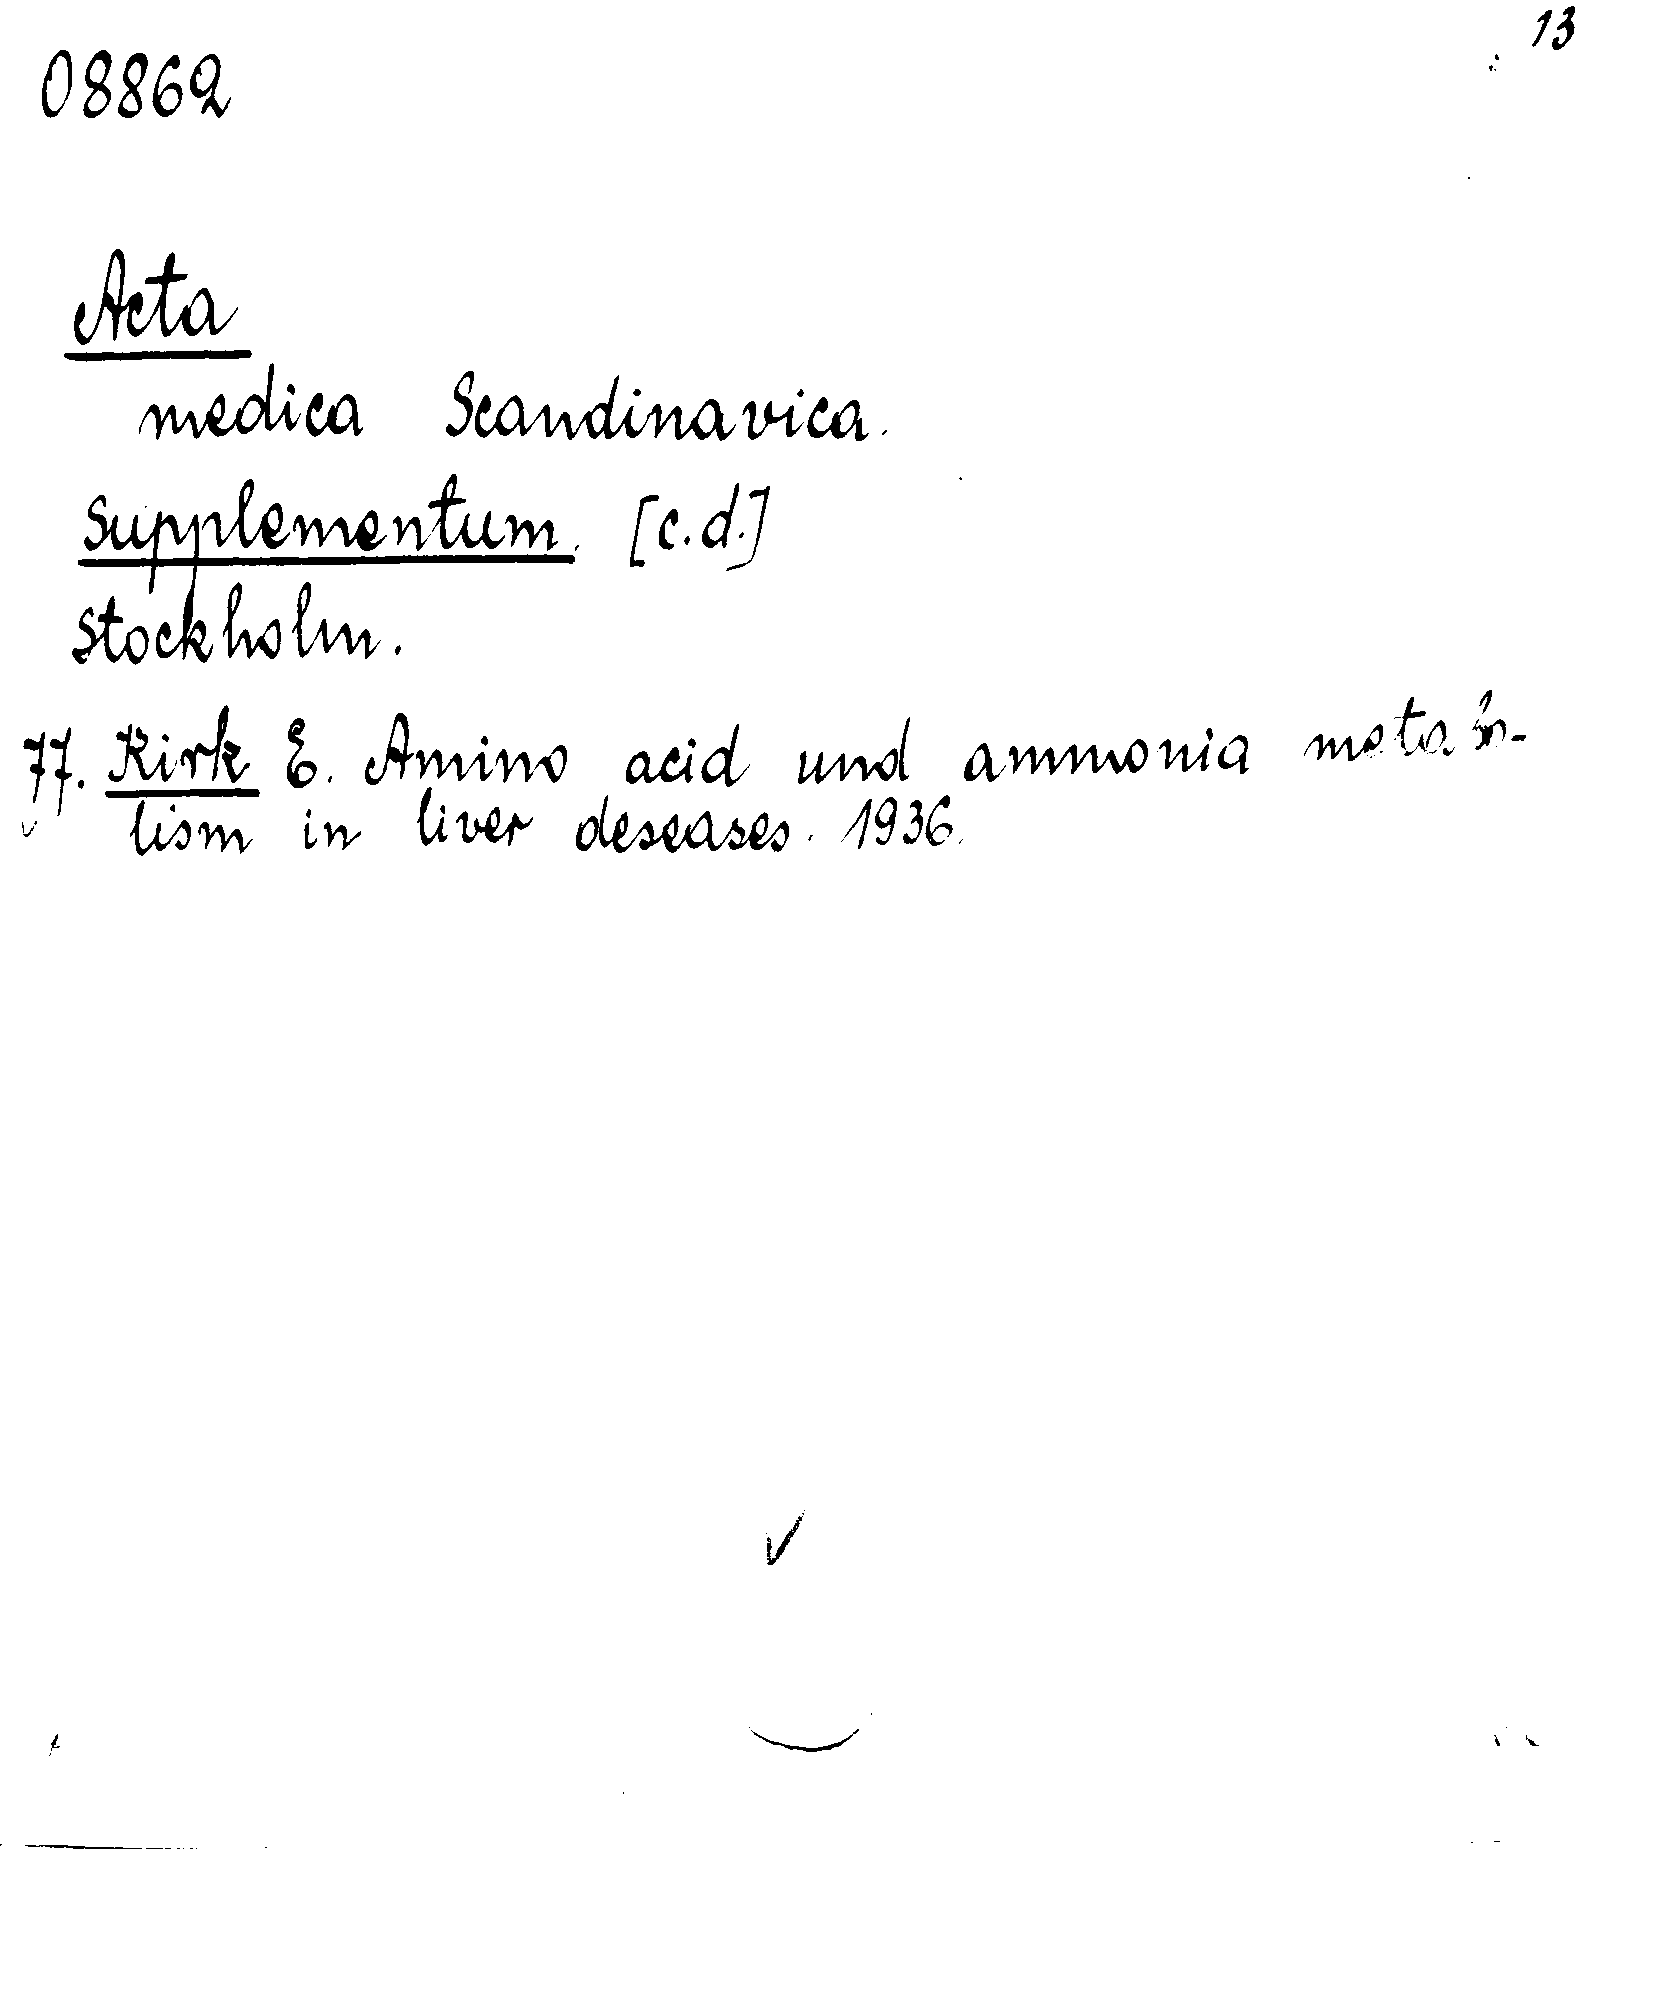 13
08862
Acta
medica Scandinavica.
Supplementum. [c.d.]
Stockholm.
77. Kirk E. Amino acid und ammonia metabo-
lism in liver deseases. 1936.